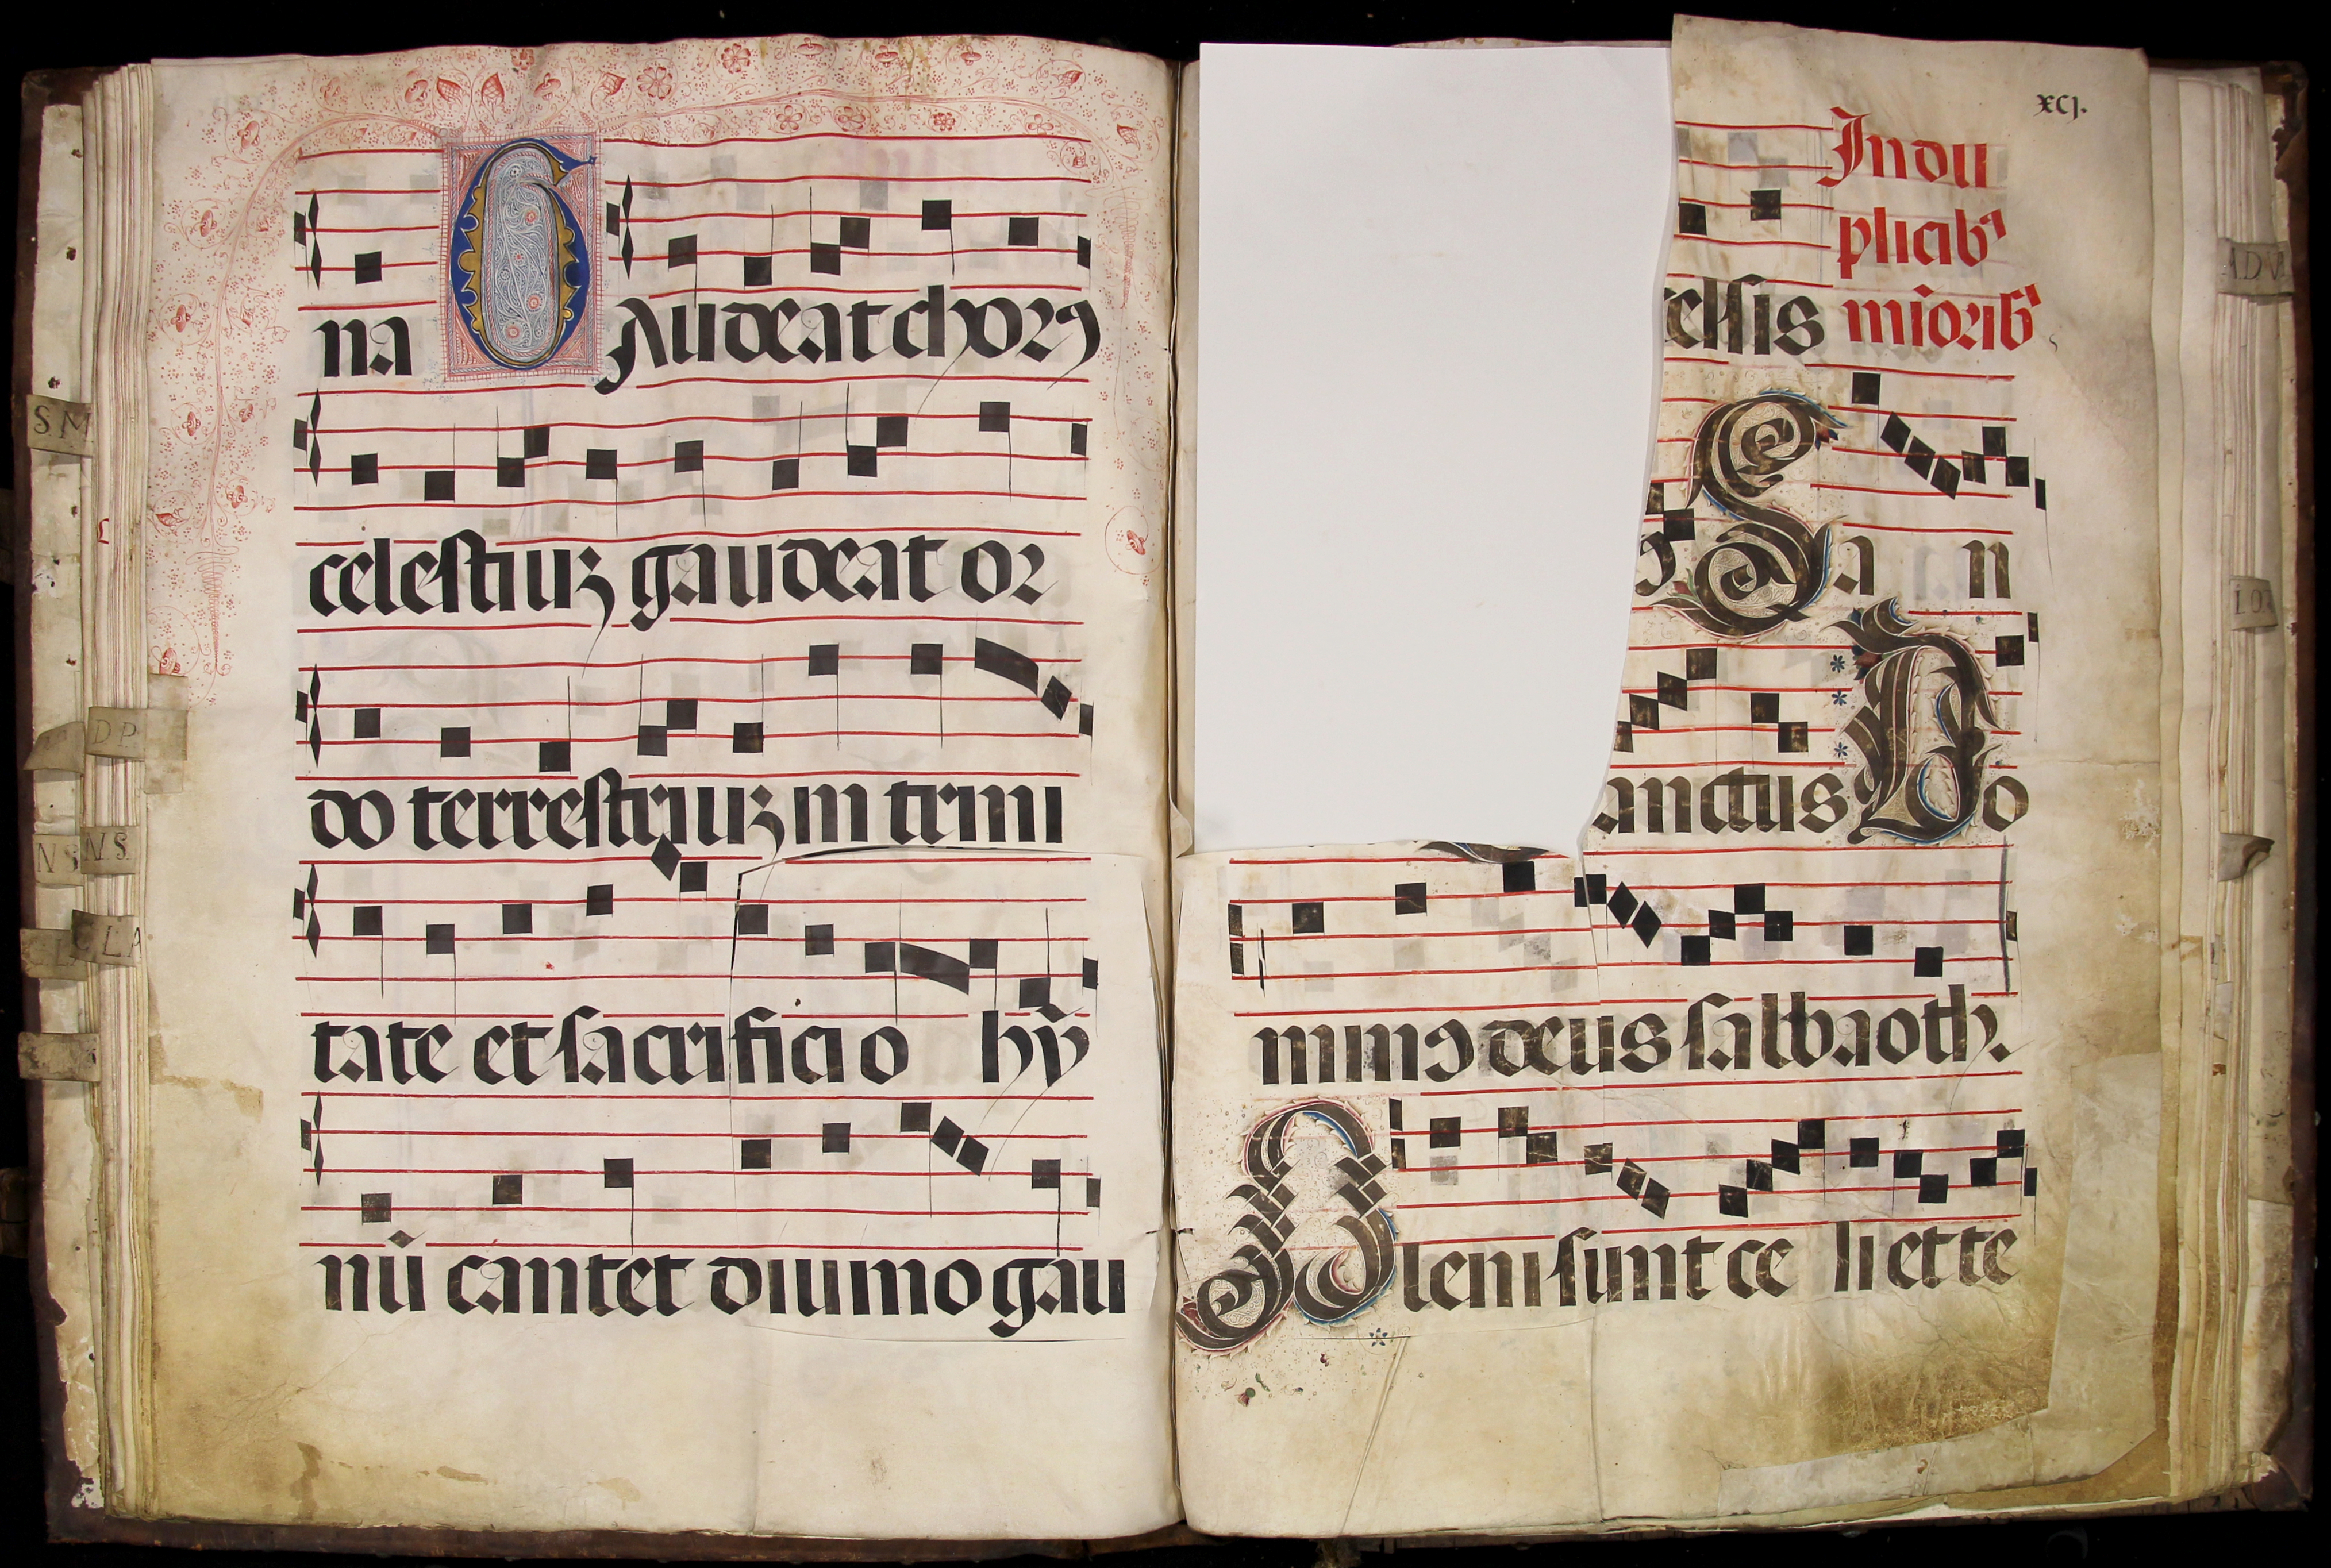 na Gaudeat chorꝰ
celestiuꝫ gaudeat or
do terrestriuꝫ in trini
tate et sacrificio hỹ
nū cantet diuino gau
xcj.
In du
plicibꝰ
celsis mīoribꝰ
San
anctus Do
minꝰ deus salbaoth.
Pleni sunt ce li et te
S M
D P
N S
N S
L A
A D V